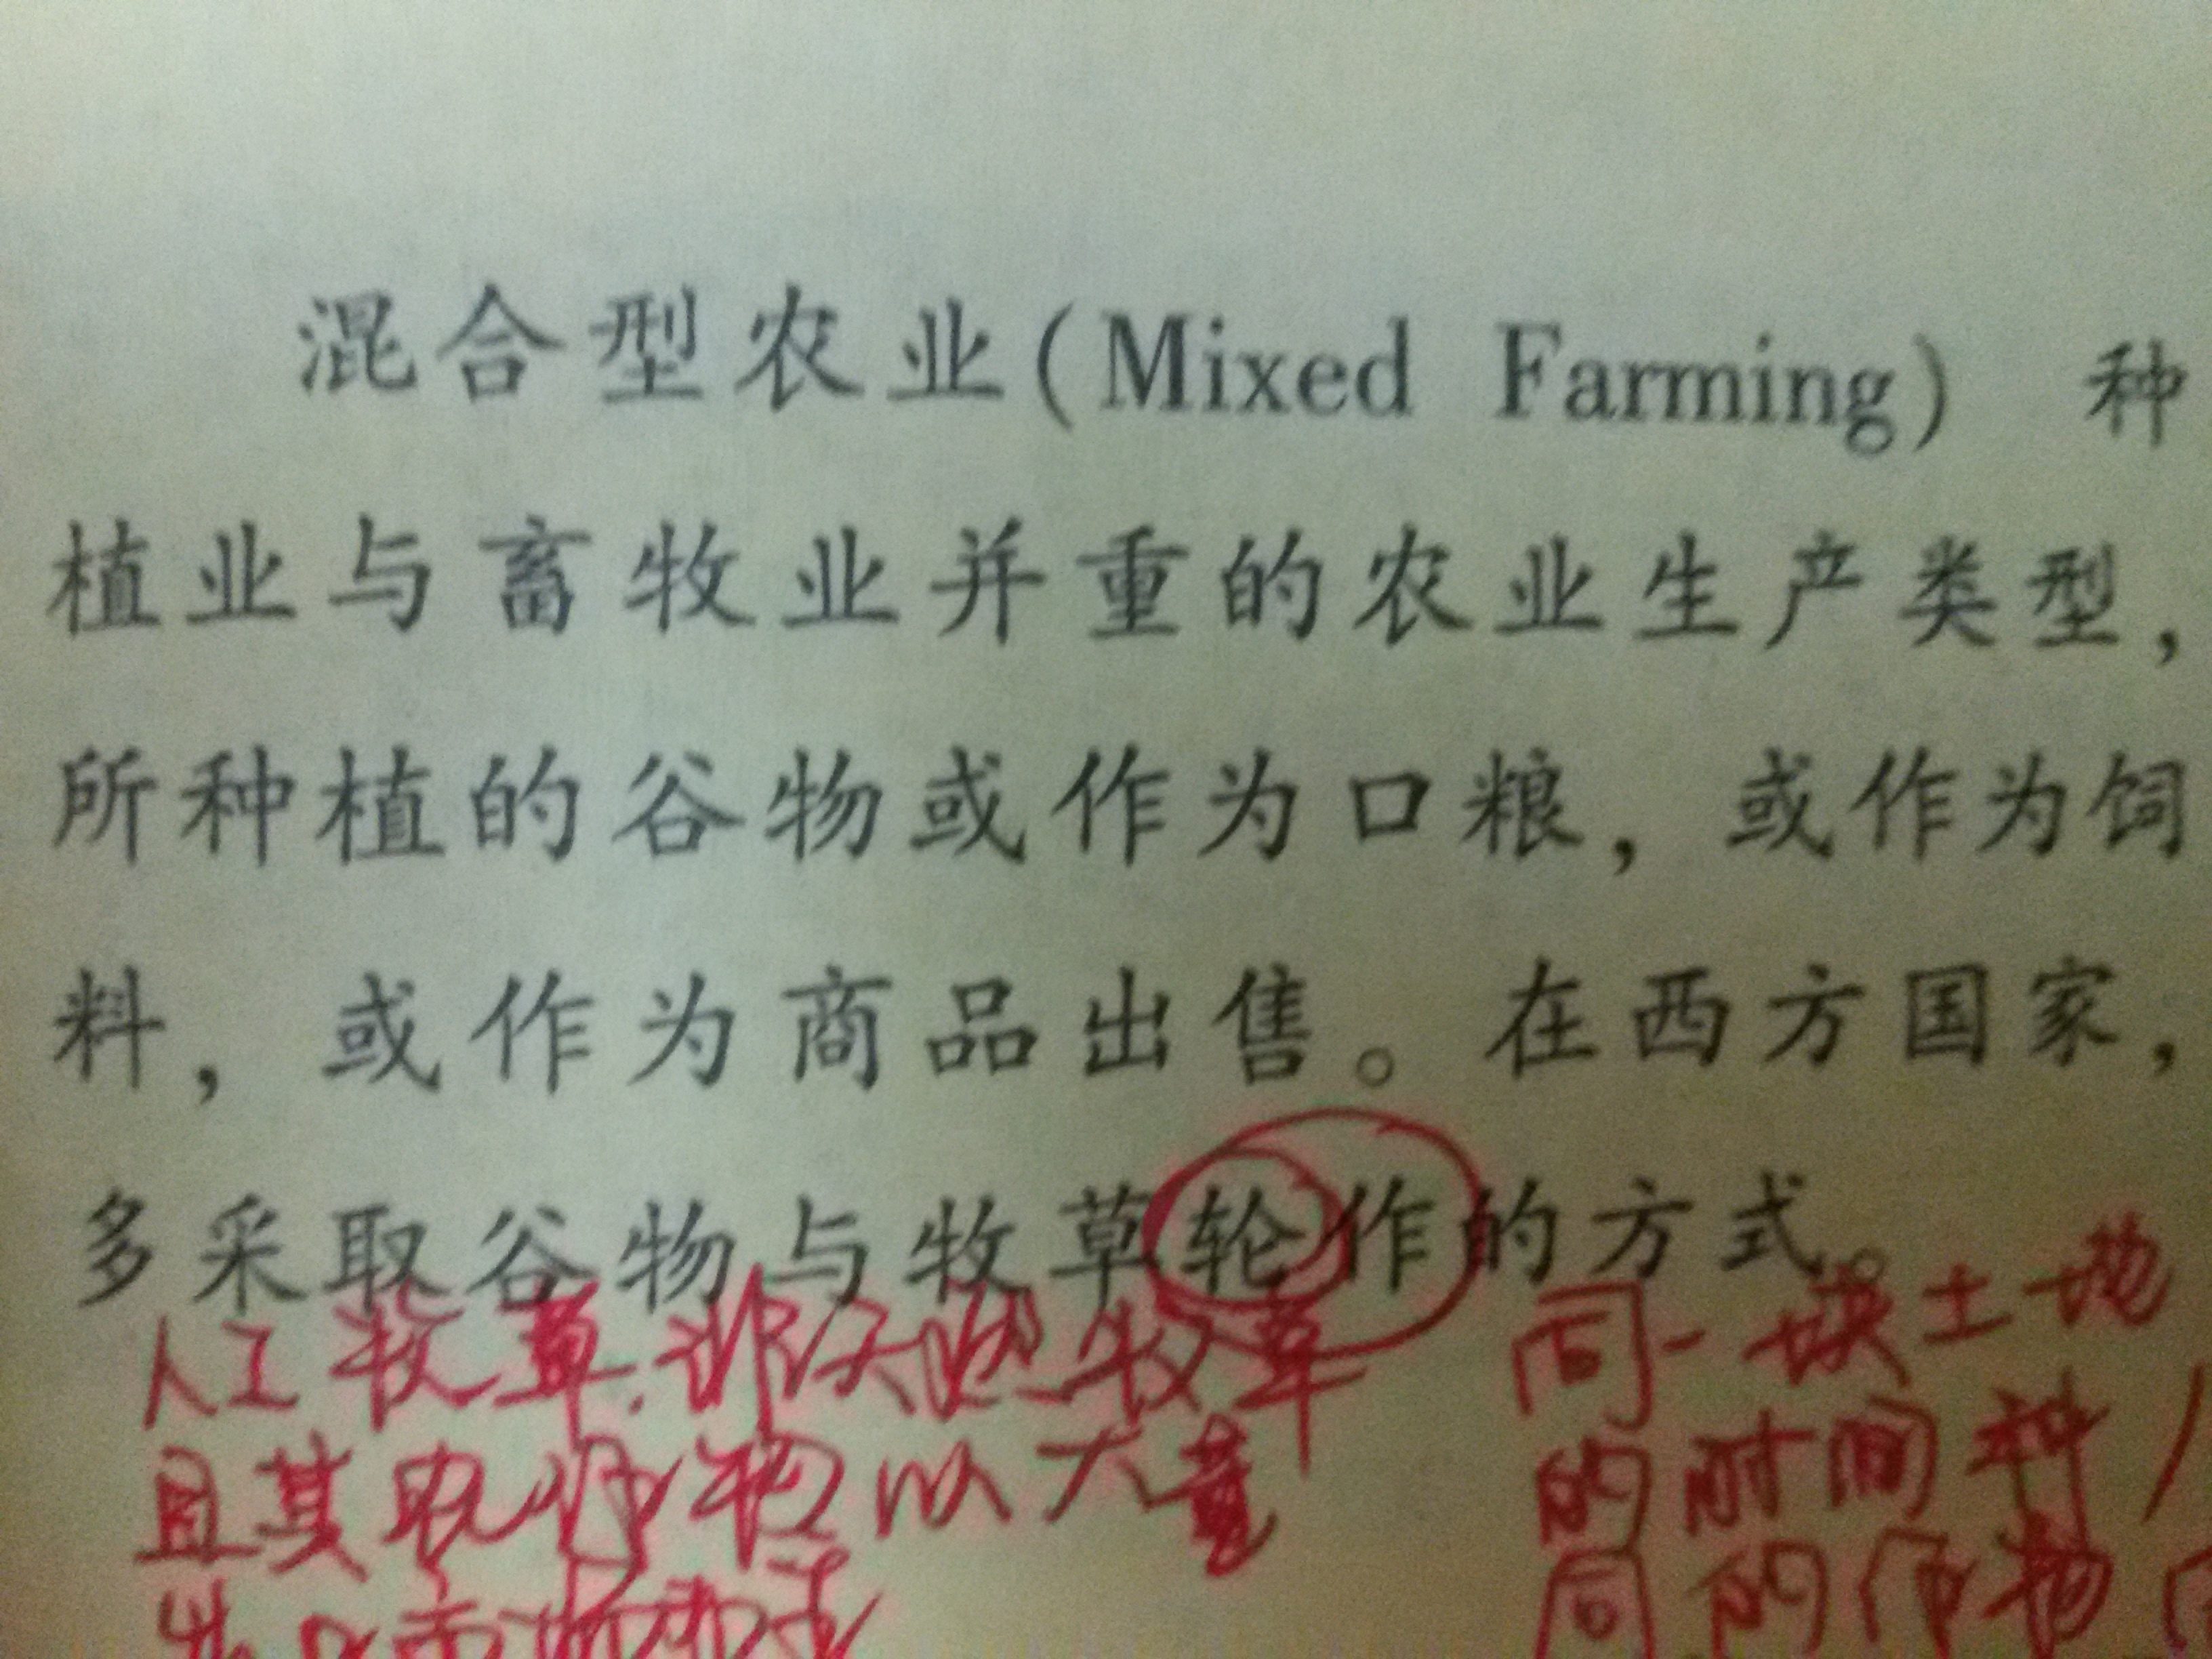 混合型农业(Mixed Farming) 种
植业与畜牧业并重的农业生产类型，
所种植的谷物或作为口粮，或作为饲
料，或作为商品出售。在西方国家，
多采取谷物与牧草轮作的方式。
人工牧草，非天然牧草
且其 以大
同一块土地
的时间种
同的作物